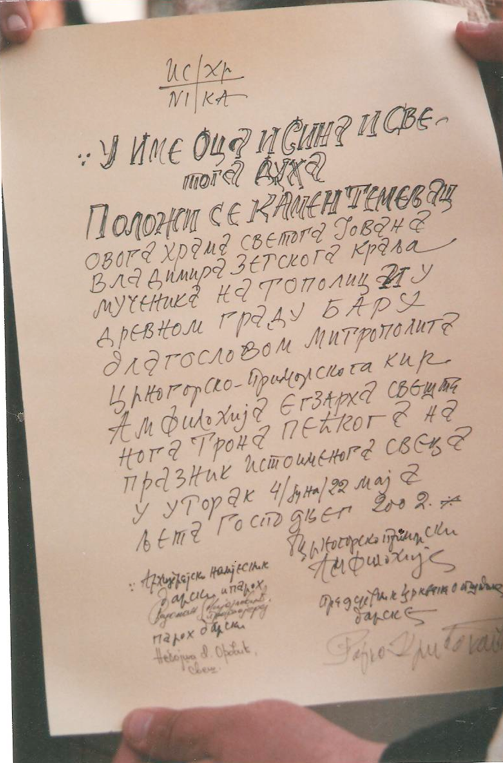 ИС/ХР
NI/KA
У ИМЕ ОЦА И СИНА И СВЕ-
ТОГА ДУХА
ПОЛОЖИ СЕ КАМЕН ТЕМЕЉАЦ
ОВОГА ХРАМА СВЕТОГА ЈОВАНА
ВЛАДИМИРА ЗЕТСКОГА КРАЉА
МУЧЕНИКА НА ТОПОЛИЦИ У
ДРЕВНОМ ГРАДУ БАРУ
БЛАГОСЛОВОМ МИТРОПОЛИТА
ЦРНОГОРСКО-ПРИМОРСКОГА КИР
АМФИЛОХИЈА ЕГЗАРХА СВЕШТЕ
НОГА ТРОНА ПЕЋКОГА НА
ПРАЗНИК ИСТОИМЕНОГА СВЕЦА
У УТОРАК 4/ЈУНА/22 МАЈА
ЉЕТА ГОСПОДЊЕГ 2002.
Црногорско приморски
Амфилохије
Архијерејски намјесник
барски и парох,
парох барски
Предсједник Црквене општине
барске